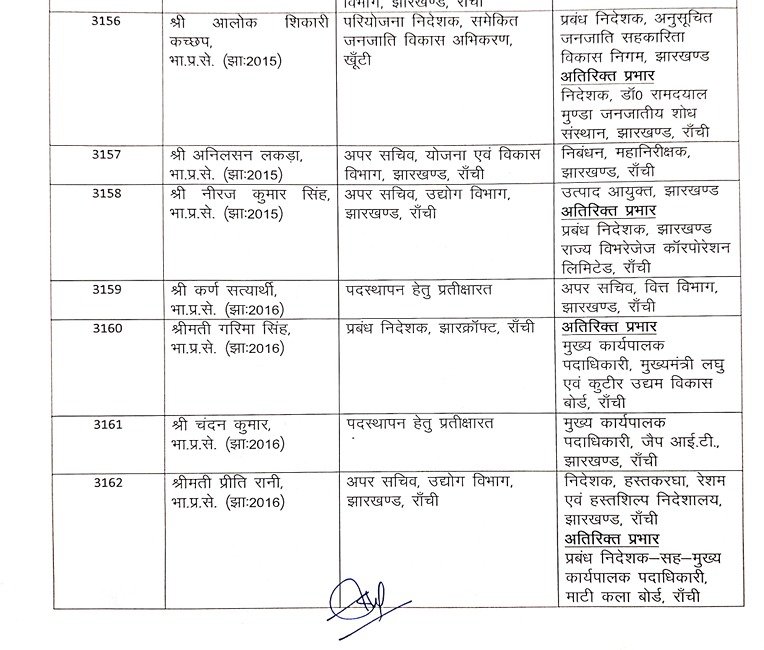 विभाग, झारखण्ड, राँची
3156
श्री आलोक शिकारी
कच्छप,
भा.प्र.से. (झाः2015)
परियोजना निदेशक, समेकित
जनजाति विकास अभिकरण,
खूँटी
प्रबंध निदेशक, अनुसूचित
जनजाति सहकारिता
विकास निगम, झारखण्ड
अतिरिक्त प्रभार
निदेशक, डॉ0 रामदयाल
मुण्डा जनजातीय शोध
संस्थान, झारखण्ड, राँची
3157
श्री अनिलसन लकड़ा,
भा.प्र.से. (झाः2015)
अपर सचिव, योजना एवं विकास
विभाग, झारखण्ड, राँची
निबंधन, महानिरीक्षक,
झारखण्ड, राँची
3158
श्री नीरज कुमार सिंह,
भा.प्र.से. (झाः2015)
अपर सचिव, उद्योग विभाग,
झारखण्ड, राँची
उत्पाद आयुक्त, झारखण्ड
अतिरिक्त प्रभार
प्रबंध निदेशक, झारखण्ड
राज्य विभरेजेज कॉरपोरेशन
लिमिटेड, राँची
3159
श्री कर्ण सत्यार्थी,
भा.प्र.से. (झाः2016)
पदस्थापन हेतु प्रतीक्षारत
अपर सचिव, वित्त विभाग,
झारखण्ड, राँची
3160
श्रीमती गरिमा सिंह,
भा.प्र.से. (झाः2016)
प्रबंध निदेशक, झारक्रॉफ्ट, राँची
अतिरिक्त प्रभार
मुख्य कार्यपालक
पदाधिकारी, मुख्यमंत्री लघु
एवं कुटीर उद्यम विकास
बोर्ड, राँची
3161
श्री चंदन कुमार,
भा.प्र.से. (झाः2016)
पदस्थापन हेतु प्रतीक्षारत
मुख्य कार्यपालक
पदाधिकारी, जैप आई.टी.,
झारखण्ड, राँची
3162
श्रीमती प्रीति रानी,
भा.प्र.से. (झाः2016)
अपर सचिव, उद्योग विभाग,
झारखण्ड, राँची
निदेशक, हस्तकरघा, रेशम
एवं हस्तशिल्प निदेशालय,
झारखण्ड, राँची
अतिरिक्त प्रभार
प्रबंध निदेशक–सह–मुख्य
कार्यपालक पदाधिकारी,
माटी कला बोर्ड, राँची